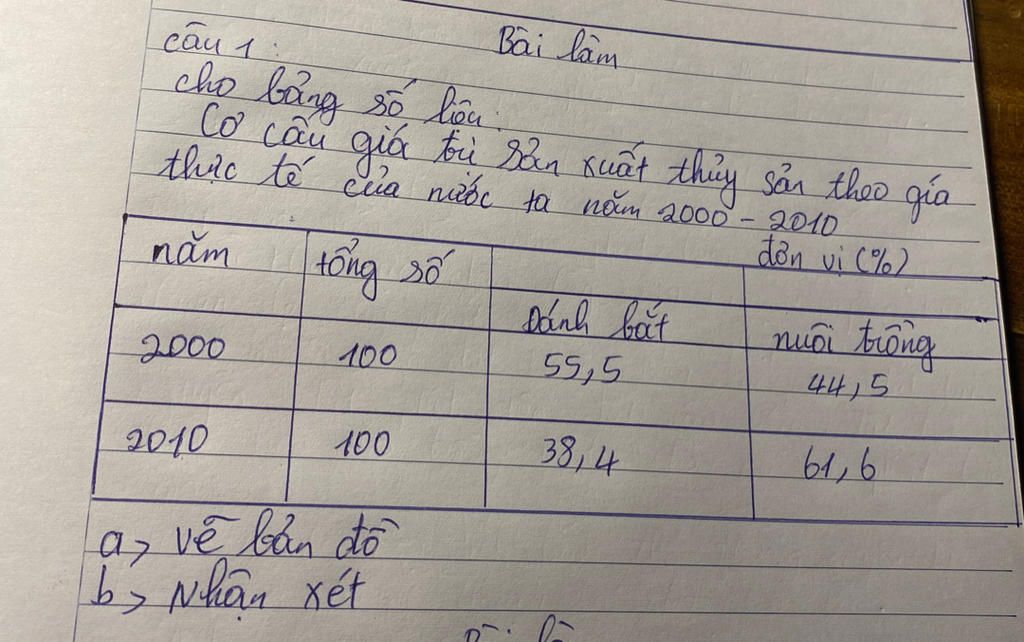 Bài làm
câu 1:
cho bảng số liệu:
Cơ cấu giá trị sản xuất thủy sản theo gía
thực tế của nước ta năm 2000 - 2010
đơn vị (%)
năm tổng số
Đánh bắt nuôi trồng
2000 100 55,5 44,5
2010 100 38,4 61,6
a> vẽ bản đồ
b> Nhận xét